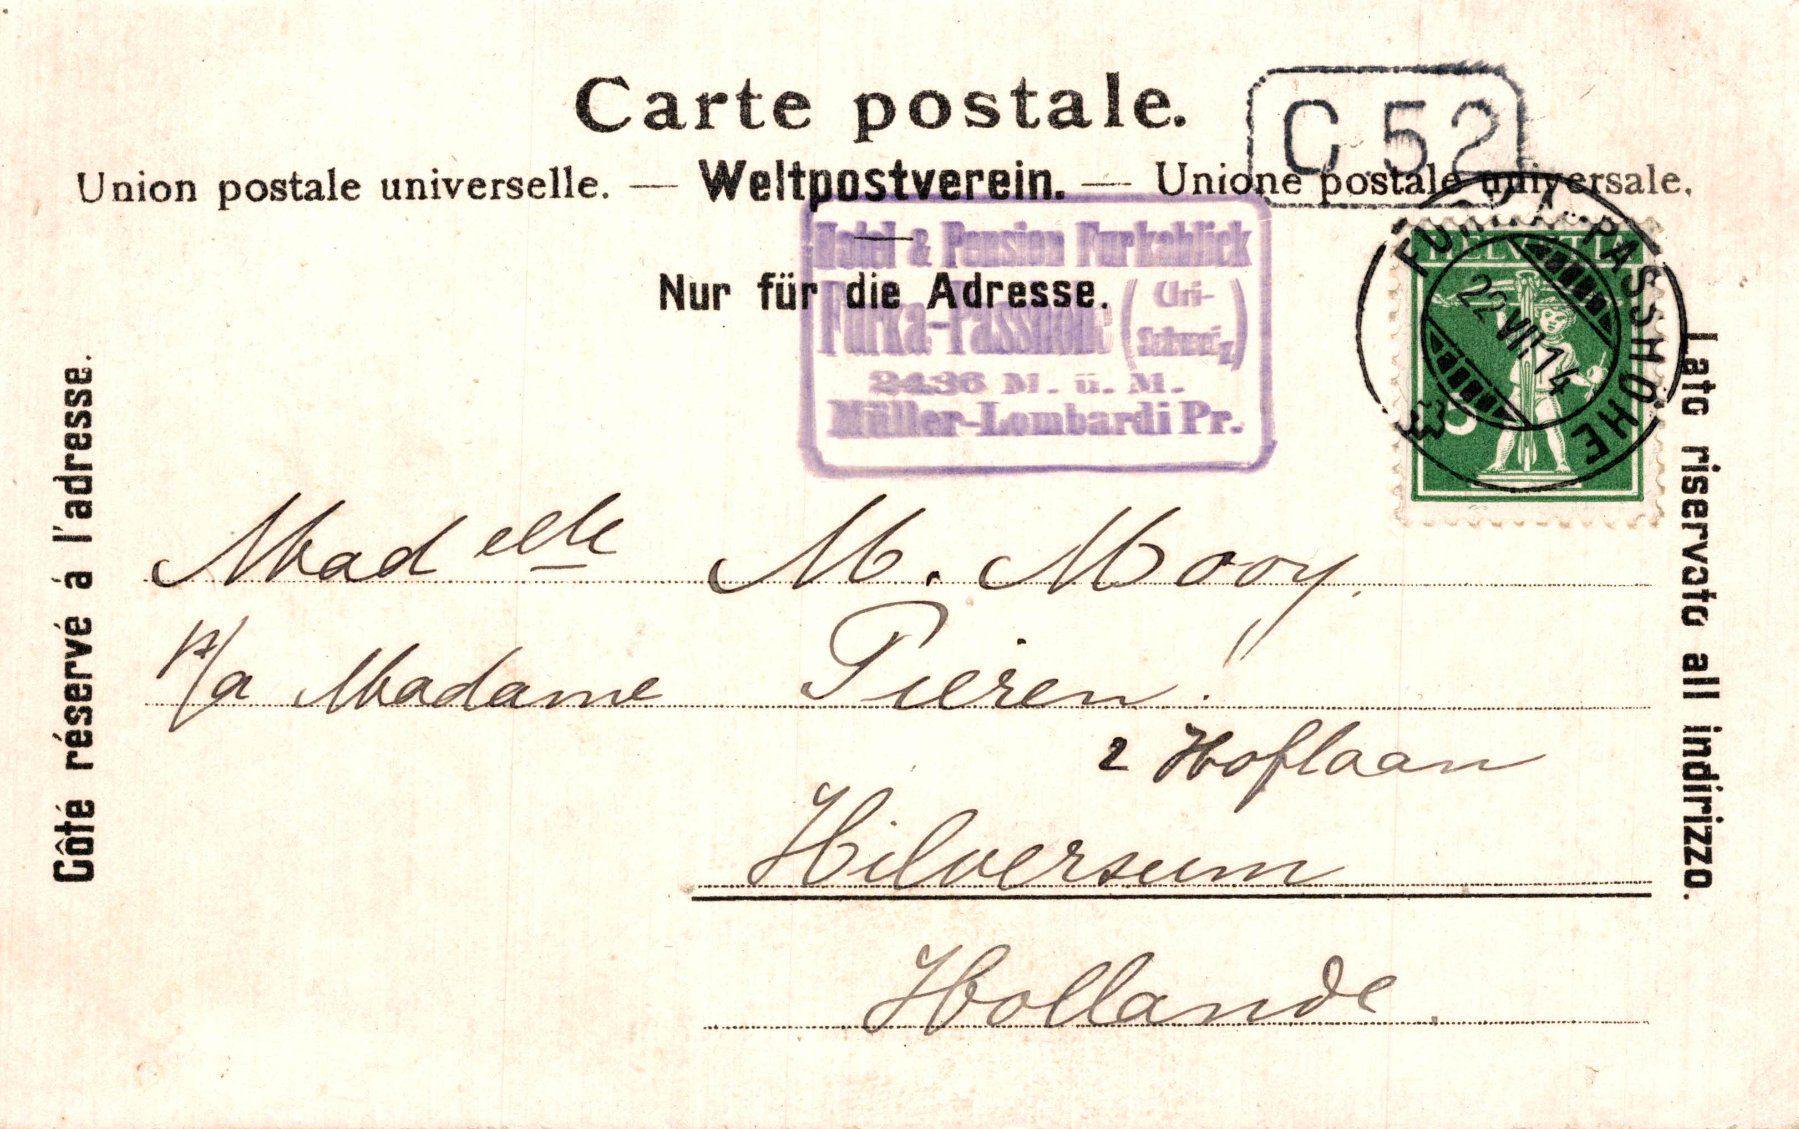 Carte postale.
C 52
Union postale universelle. — Weltpostverein. — Unione postale universale.
Nur für die Adresse.
Hotel & Pension Furkablick
Furka-Passhöhe (Uri-Schweiz)
2436 M. ü. M.
Müller-Lombardi Pr.
HELVETIA
5
FURKA-PASSHÖHE
22.VII.14
Côté réservé à l'adresse.
Lato riservato all indirizzo.
Madelle M. Mooy.
p/a Madame Pieren.
2 Hoflaan
Hilversum
Hollande.